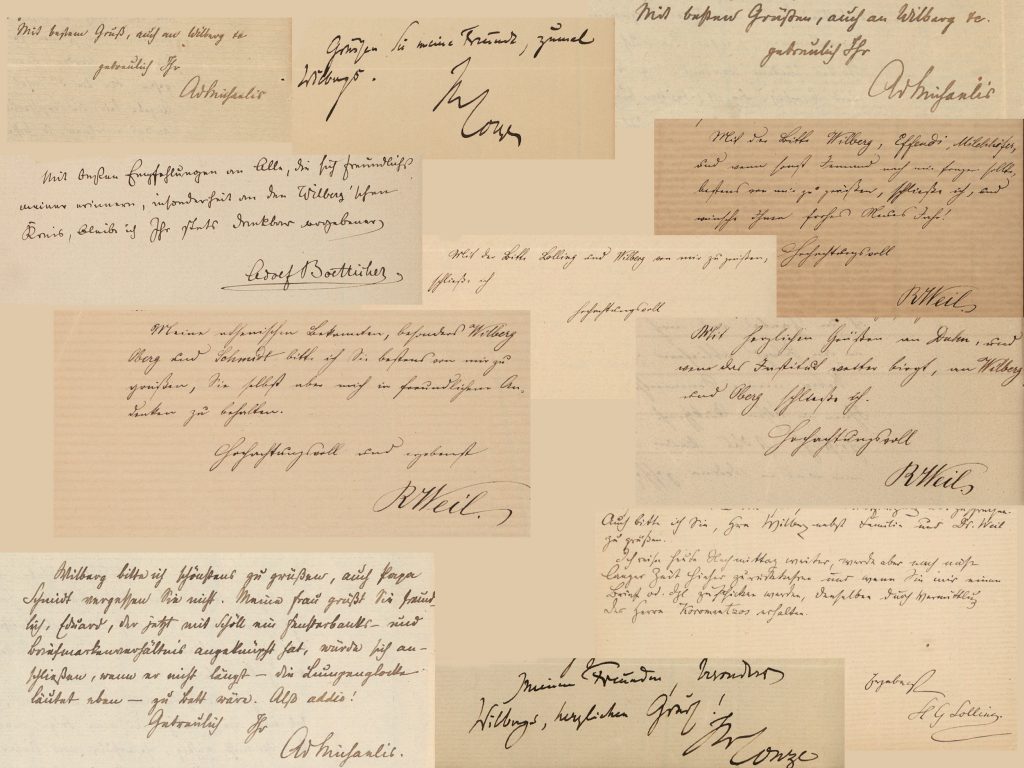 Mit bestem Gruß, auch an Wilberg &c
getreulich Ihr
AdMichaelis
Grüßen Sie meine Freunde, zumal
Wilbergs.
Ihr
Conze
Mit besten Grüßen, auch an Wilberg &c.
getreulich Ihr
AdMichaelis
Mit besten Empfehlungen an Alle, die sich freundlichst
meiner erinnern, insonderheit an den Wilberg'schen
Kreis, bleibe ich Ihr stets dankbar ergebener
Adolf Boetticher
Mit der Bitte Wilberg, Effendi, Milchhöfer,
und wenn sonst Jemand nach mir fragen sollte,
bestens von mir zu grüßen, schließe ich, und
wünsche Ihnen frohes Neues Jahr!
Hochachtungsvoll
RWeil
Mit der Bitte Lolling und Wilberg von mir zu grüßen,
schließe ich
Hochachtungsvoll
Meine athenischen Bekannten, besonders Wilberg
Oberg und Schmidt bitte ich Sie bestens von mir zu
grüßen, Sie selbst aber mich in freundlichem An-
denken zu behalten.
Hochachtungsvoll und ergebenst
RWeil.
Mit herzlichen Grüßen an Duhn, und
wen das Institut weiter birgt, an Wilberg
und Oberg schließe ich.
Hochachtungsvoll
RWeil.
Auch bitte ich Sie, Hrn Wilberg nebst Familie und Dr. Weil
zu grüßen.
Ich reise heute Nachmittag weiter, werde aber nach nicht
langer Zeit hieher zurückkehren und wenn Sie mir einen
Brief od. dgl. zuschicken werden, denselben durch Vermittlung
des Herrn erhalten.
Ergebenst
H G Lolling
Wilberg bitte ich schönstens zu grüßen, auch Papa
Schmidt vergessen Sie nicht. Meine Frau grüßt Sie freund
lich, Eduard, der jetzt mit Schöll ein Fensterbanks- und
Briefmarkenverhältnis angeknüpft hat, würde sich an-
schließen, wenn er nicht längst - die Lumpenglocke
läutet eben - zu Bett wäre. Also addio!
Getreulich Ihr
AdMichaelis.
Meinen Freunden, besonders
Wilbergs, herzlichen Gruß!
Ihr
Conze